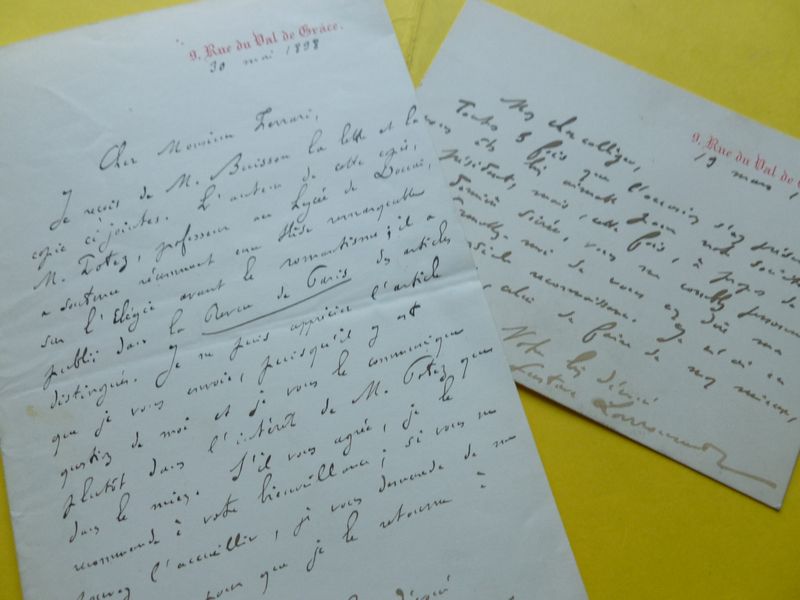 9, Rue du Val de Grâce.
30 mai 1898
Cher Monsieur Ferrari,
Je reçois de M. Buisson la lettre et la
copie ci-jointes. L'auteur de cette copie,
M. Potez, professeur au lycée de Douai,
a soutenu récemment une thèse remarquable
sur l'Elégie avant le romantisme; il a
publié dans la Revue de Paris des articles
distingués. Je ne puis apprécier l'article
que je vous envoie, puisqu'il y est
question de moi et je vous le communique
plutôt dans l'intérêt de M. Potez que
dans le mien. S'il vous agrée, je le
recommande à votre bienveillance; si vous ne
pouvez l'accueillir, je vous demande de me
pour que je le retourne à
dévoué
9, Rue du Val de G
19 mars,
Mon cher collègue,
Toutes les fois que l'occasion s'est
de bien aimable pour notre société
président, mais, cette fois, à propos de
dernière soirée, vous me comblez
Permettez-moi de vous en dire ma
reconnaissance. Je
de faire de mon mieux,
Votre bien dévoué
Gustave Larroumet